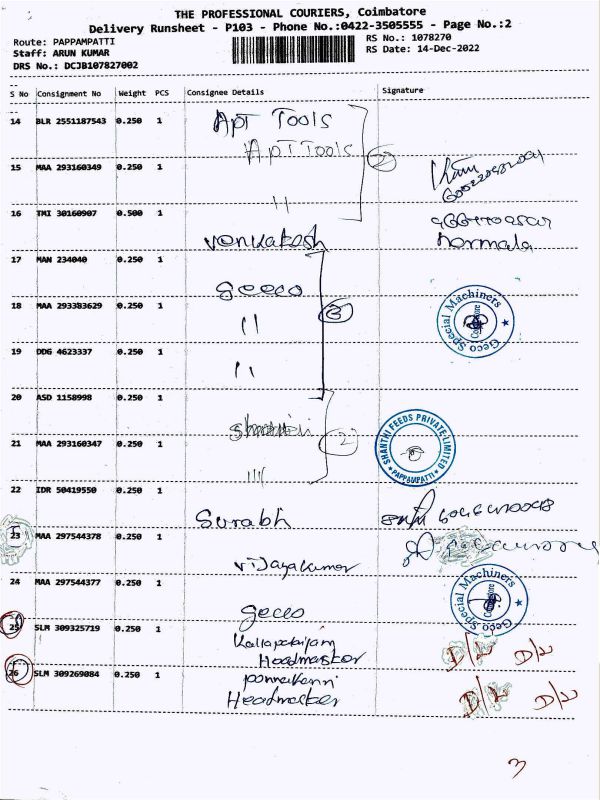 THE PROFESSIONAL COURIERS, Coimbatore
Delivery Runsheet - P103 - Phone No.:0422-3505555 - Page No.:2
Route: PAPPAMPATTI
Staff: ARUN KUMAR
DRS No.: DCJB107827002
RS No.: 1078270
RS Date: 14-Dec-2022
S No Consignment No Weight PCS Consignee Details Signature
14 BLR 2551187543 0.250 1 Apt Tools
Apt Tools
15 MAA 293160349 0.250 1 "
2
16 TMI 30160907 0.500 1 Venkatesh
Normala
17 MAN 234040 0.250 1 geeco
18 MAA 293383629 0.250 1 "
3
Geco Special Machiners
Coimbatore
19 DDG 4623337 0.250 1 "
20 ASD 1158998 0.250 1
2
SHANTHI FEEDS PRIVATE LIMITED
PAPPAMPATTI
21 MAA 293160347 0.250 1 "
22 IDR 50419550 0.250 1 Surabh
23 MAA 297544378 0.250 1 Vijayakumar
24 MAA 297544377 0.250 1 geeco
Geco Special Machiners
25 SLM 309325719 0.250 1
Headmaster
D/L D/L
26 SLM 309269084 0.250 1
Headmaster
D/L D/L
3